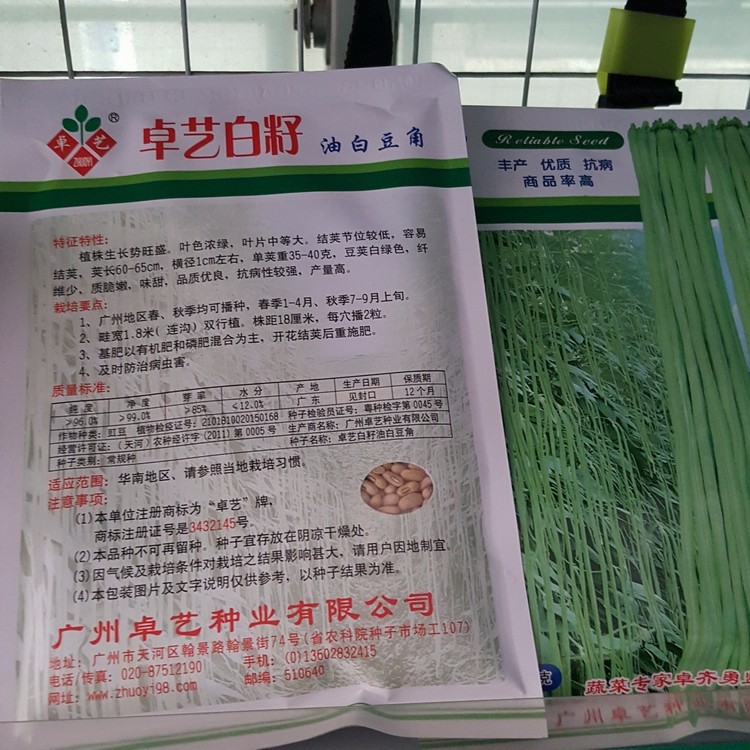 卓艺
ZHUOYI
®
卓艺白籽 油白豆角
特征特性:
植株生长势旺盛。叶色浓绿，叶片中等大。结荚节位较低，容易
结荚，荚长60-65cm，横径1cm左右，单荚重35-40克，豆荚白绿色，纤
维少、质脆嫩，味甜，品质优良，抗病性较强，产量高。
栽培要点:
1、广州地区春、秋季均可播种，春季1-4月、秋季7-9月上旬。
2、畦宽1.8米(连沟)双行植。株距18厘米，每穴播2粒。
3、基肥以有机肥和磷肥混合为主，开花结荚后重施肥。
4、及时防治病虫害。
质量标准:
纯度 净度 芽率 水分 产地 生产日期 保质期
>96.0% >99.0% >85% ≤12.0% 广东 见封口 12个月
作物种类: 豇豆 植物检疫证号: 2101810020150168 种子检验员证号: 粤种检字第0045号
经营许可证: (天河)农种经许字(2011)第0005号 生产商名称: 广州卓艺种业有限公司
种子类别: 常规种 种子名称: 卓艺白籽油白豆角
适应范围: 华南地区、请参照当地栽培习惯。
注意事项:
(1)本单位注册商标为“卓艺”牌，
商标注册证号是3432145号。
(2)本品种不可再留种。种子宜存放在阴凉干燥处。
(3)因气候及栽培条件对栽培之结果影响甚大，请用户因地制宜。
(4)本包装图片及文字说明仅供参考，以种子结果为准。
广州卓艺种业有限公司
地址: 广州市天河区翰景路翰景街74号(省农科院种子市场工107)
电话/传真: 020-87512190 手机: (0)13602832415
网址: www.zhuoyi98.com 邮编: 510640
Reliable Seed
丰产 优质 抗病
商品率高
克
蔬菜专家卓齐勇
广州卓艺种业有